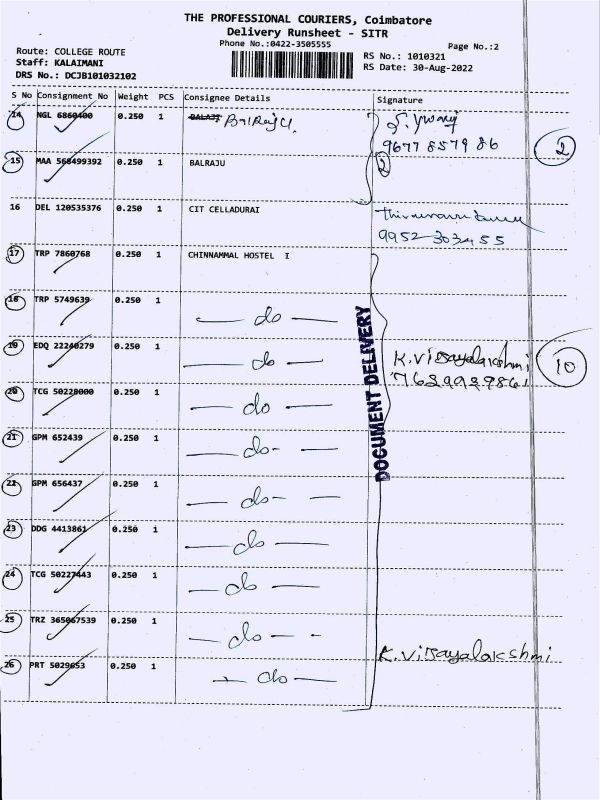 THE PROFESSIONAL COURIERS, Coimbatore
Delivery Runsheet - SITR
Phone No.:0422-3505555
Page No.:2
Route: COLLEGE ROUTE
RS No.: 1010321
Staff: KALAIMANI
RS Date: 30-Aug-2022
DRS No.: DCJB101032102
S No Consignment No Weight PCS Consignee Details Signature
14 NGL 6860400 0.250 1 BalRaju.
9677857986
2
15 MAA 568499392 0.250 1 BALRAJU
2
16 DEL 120535376 0.250 1 CIT CELLADURAI
9952303455
17 TRP 7860768 0.250 1 CHINNAMMAL HOSTEL I
18 TRP 5749639 0.250 1 — do —
DOCUMENT DELIVERY
19 EDQ 22240279 0.250 1 — do —
K.Vijayalakshmi
10
20 TCG 50228000 0.250 1 — do —
21 GPM 652439 0.250 1 — do- —
22 GPM 656437 0.250 1 — do- —
23 DDG 4413861 0.250 1 — do —
24 TCG 50227443 0.250 1 — do —
25 TRZ 365067539 0.250 1 — do - -
K.Vijayalakshmi
26 PRT 5029653 0.250 1 — do —